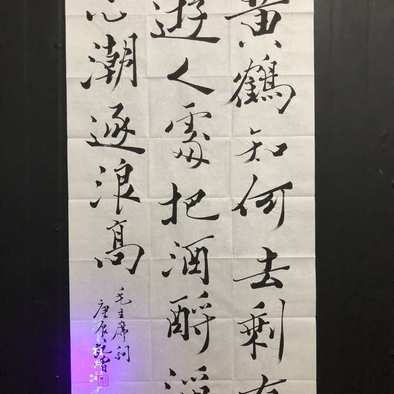 黄鹤知何去剩有
遊人處把酒酹滔
心潮逐浪高
毛主席詞
庚辰